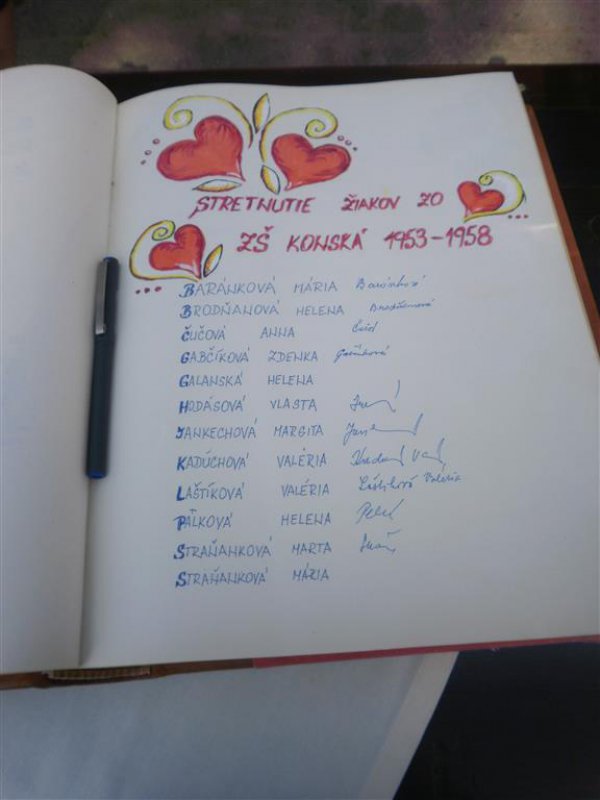 STRETNUTIE ŽIAKOV ZO
ZŠ KONSKÁ 1953-1958
BARÁNKOVÁ MÁRIA Baránková
BRODŇANOVÁ HELENA Brodňanová
ČUČOVÁ ANNA
GABČÍKOVÁ ZDENKA Gabčíková
GALANSKÁ HELENA
HODÁSOVÁ VLASTA
JANKECHOVÁ MARGITA
KADÚCHOVÁ VALÉRIA
LAŠTÍKOVÁ VALÉRIA Laštíková Valéria
PAĽKOVÁ HELENA
STRAŇANKOVÁ MARTA
STRAŇANKOVÁ MÁRIA